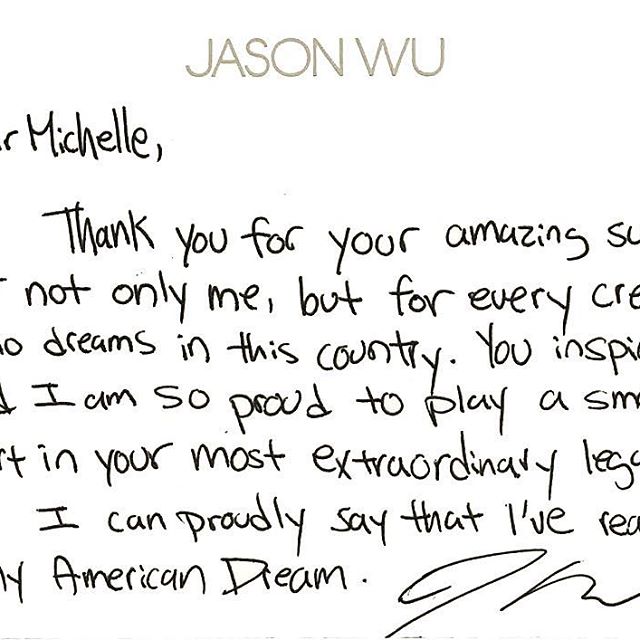 JASON WU
r Michelle,
Thank you for your amazing su
r not only me, but for every cre
o dreams in this country. You inspi
d I am so proud to play a sm
rt in your most extraordinary lega
I can proudly say that I've rea
y American Dream.